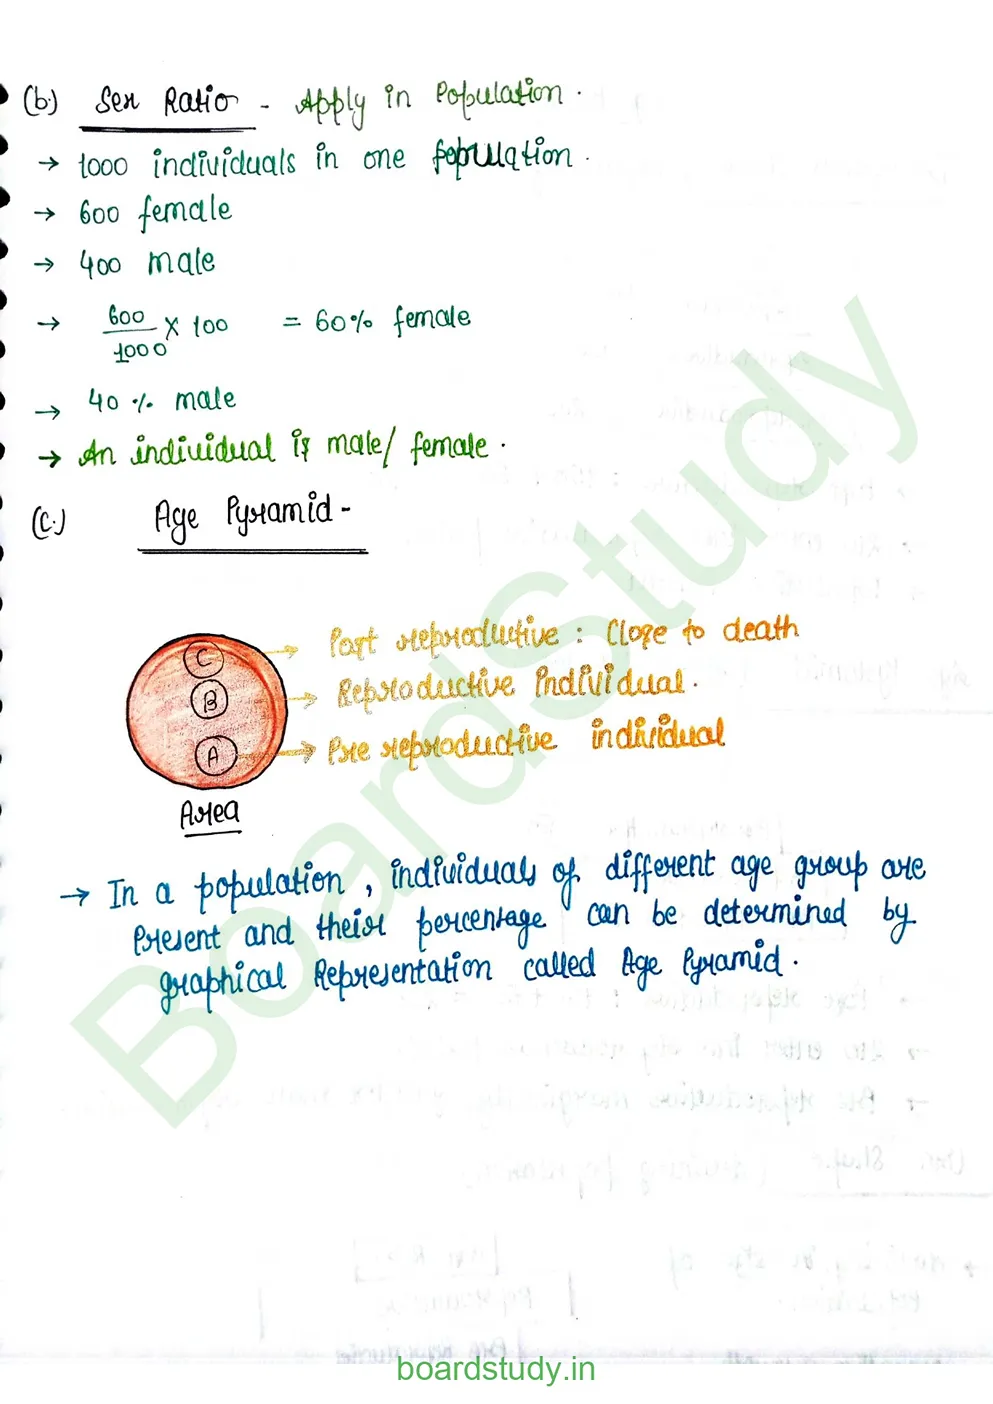 (b.) Sex Ratio - Apply in Population.
→ 1000 individuals in one population.
→ 600 female
→ 400 male
→ 600/1000 × 100 = 60% female
→ 40 % male
→ An individual is male/ female.
(C.) Age Pyramid -
C → Post reproductive : Close to death
B → Reproductive Individual.
A → Pre reproductive individual
Area
→ In a population, individuals of different age group are
Present and their percentage can be determined by
graphical Representation called Age Pyramid.
BoardStudy
boardstudy.in